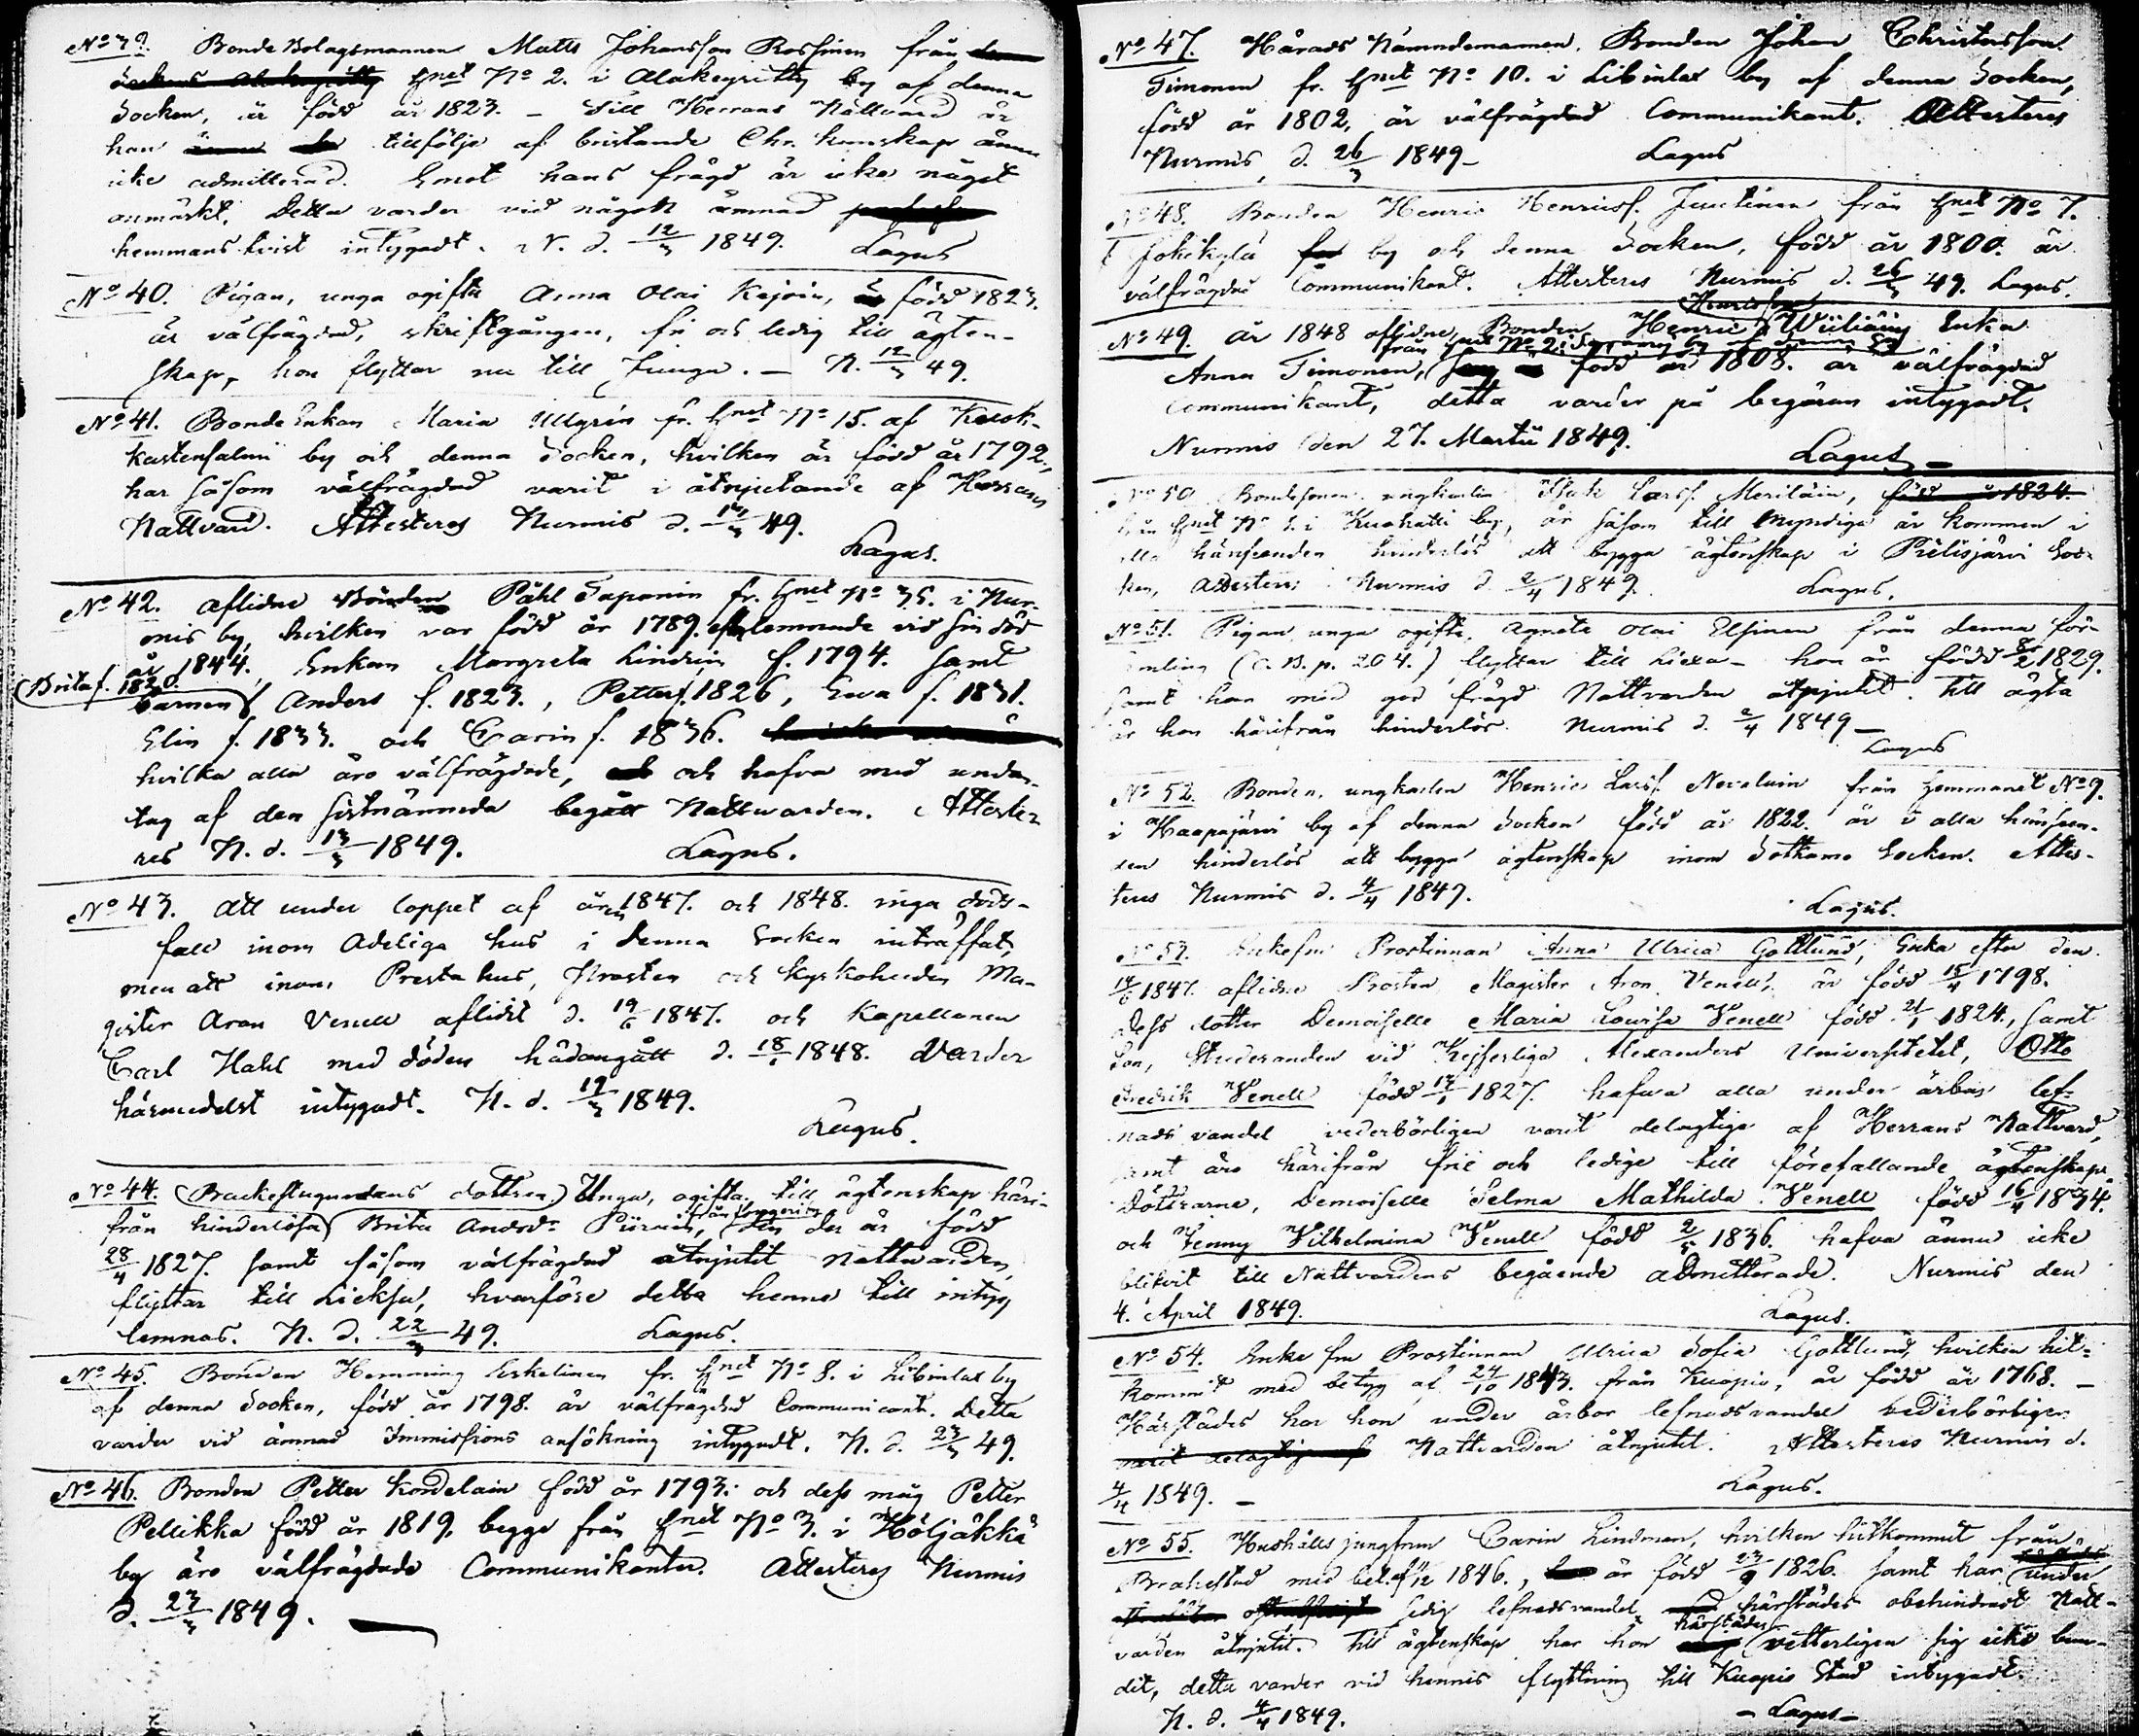 No 39. Bonde Bolagsmannen Matts Johansson Rossinen från
hmet No 2. i Alakeyritty by af denna
Socken, är född år 1823. – Till Herrans Nattvard är
han tillfölje af bristande Chr. kunskap ännu
icke admitterad. Emot hans frägd är icke något
anmärkt. Detta varder vid någott ämnad
hemmans tvist intygadt. N. d. 12/3 1849. Lagus
No 40. Pigan, unga ogifta Anna Olai Kejoin, född 1823.
är välfrägdad, skriftgången, fri och ledig till ägten-
skap, hon flyttar nu till Juuga. – N. 12/3 49.
No 41. Bonde Enkan Maria Ullgrén fr. hmet No 15. af Kuok-
kastensalmi by och denna Socken, hvilken är född år 1792,
har såsom välfrägdad varit i åtnjutande af Herrans
Nattvard. Attesteras Nurmis d. 14/3 49.
Lagus.
No 42. Aflidne Bonden Påhl Saponin fr. hmet No 35. i Nur-
mis by, hvilken var född år 1789. efterlemnade vid sin död
år 1844., Enkan Margreta Lindrin f. 1794. samt
(Brita f. 1820.
barnen Anders f. 1823., Petter f. 1826, Ewa f. 1831.
Elin f. 1833. och Carin f. 1836.
hvilka alla äro välfrägdade, och hafva med undan-
tag af den sistnämnda begått Nattwarden. Atteste-
ras N. d. 13/3 1849. Lagus.
No 43. Att under loppet af åren 1847. och 1848. inga döds-
fall inom Adeliga hus i denna Socken inträffat,
men att inom Presta hus, Prosten och kyrkoherden Ma-
gister Aron Venell aflidit d. 19/6 1847. och Kapellanen
Carl Hahl med döden hädangått d. 18/1 1848. Varder
härmedelst intygadt. N. d. 19/3 1849.
Lagus.
No 44. (Backstugumans dottren) Unga, ogifta, till ägtenskap häri-
från hinderlösa Brita Andrdr Piirain, från Porggeri by der är född
28/4 1827. samt såsom välfrägdad åtnjutit Nattwarden,
flyttar till Lieksa, hvarföre detta henne till intyg
lemnas. N. d. 22/3 49. Lagus.
No 45. Bonden Hemming Eskelinen fr. hmet No 8. i Libinlax by
af denna Socken, född år 1798. är välfrägdad Communicant. Detta
varder vid ämnad Immissions ansökning intygadt. N. d. 23/3 49.
No 46. Bonden Petter Kordelain född år 1793. och dess måg Petter
Pellikka född år 1819. begge från hmet No 3. i Höljäkkä
by äro välfrägdade Communikanter. Attesteras Nurmis
d. 23/3 1849.
No 47. Härads Nämndemannen, Bonden Johan Christersson
Timonen fr. hmet No 10. i Libinlax by af denna Socken,
född år 1802, är välfrägdad Communikant. Attesteras
Nurmis, d. 26/3 1849 – Lagus
No 48. Bonden Henric Henricss. Juutinen från hmet No 7.
i Jokikylä by och denna Socken, född år 1800. är
välfrägdad Communikant. Attesteras Nurmis d. 26/3 49. Lagus.
No 49. År 1848 aflidne Bonden Henric Henricsson Wiiliäin Enka
från hmet No 2. by af denna Sn
Anna Timonen, född år 1808. är välfrägdad
Communikant, detta varder på begäran intygadt.
Nurmis den 27. Martii 1849.
Lagus –
No 50. Bondesonen ungkarlen Isak Larss. Meriläin, född år 1824
från hmet No i Kuohatti by, är såsom till myndiga år kommen i
alla hänseenden hinderlös att bygga ägtenskap i Pielisjärvi Soc-
ken, Attesteras Nurmis d. 2/4 1849. Lagus.
No 51. Pigan unga ogifta Agneta Olai Elsinen från denna för-
samling (C. B. p. 204.) flyttar till Lieksa – hon är född 8/2 1829.
samt har med god frägd Nattvarden åtnjutit. Till ägta
är hon härifrån hinderlös. Nurmis d. 2/4 1849 –
Lagus
No 52. Bonden, ungkarlen Henric Larss. Nevalain från hemmanet No 9.
i Haapajärvi by af denna Socken född år 1822. är i alla hänseen-
den hinderlös att bygga ägtenskap inom Sotkamo Socken. Attes-
teras Nurmis d. 4/4 1849.
Lagus.
No 53. Enkefru Prostinnan Anna Ulrica Gottlund, Enka efter den
19/6 1847. aflidne Prosten Magister Aron Venell, är född 15/4 1798.
dess dotter Demoiselle Maria Lovisa Venell född 21/1 1824., samt
Son, Studeranden vid Kejserliga Alexanders Universitetet, Otto
Fredrik Venell född 17/1 1827. hafwa alla under ärbar lef-
nads vandel vederbörligen varit delagtige af Herrans Nattvard,
samt äro härifrån frie och ledige till förefallande ägtenskap.
Döttrarne, Demoiselle Selma Mathilda Venell född 16/4 1834.
och Jenny Vilhelmina Venell född 2/5 1836. hafva ännu icke
blifvit till Nattvardens begående admitterade. Nurmis den
4. April 1849. Lagus.
No 54. Enke fru Prostinnan Ulrica Sofia Gottlund, hvilken hit-
kommit med betyg af 24/10 1843. från Kuopio, är född år 1768. –
Härstädes har hon under ärbar lefnadsvandel vederbörligen
varit delagtig af Nattvarden åtnjutit. Attesteras Nurmis d.
4/4 1849. – Lagus.
No 55. Hushålls jungfrun Carin Lindman, hvilken hitkommit från
Brahestad med bet. af 1846., är född 23/9 1826. samt har under
sedig lefnadsvandel härstädes obehindradt Natt-
varden åtnjutit. Till ägtenskap har hon härstädes vetterligen sig icke bun-
dit, detta varder vid hennes flyttning till Kuopio Stad intygadt.
N. d. 4/4 1849. – Lagus –